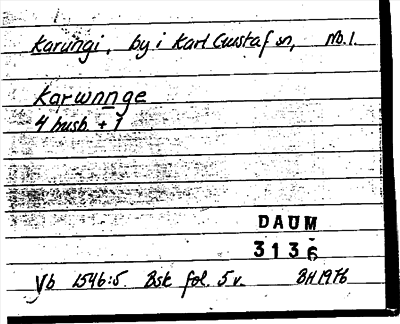 Karungi, by i Karl Gustaf sn, No.1.
Karwnnge
4 husb. + 1
DAUM
3136
Vb 1546:5. Bsk fol. 5 v. BH 1976